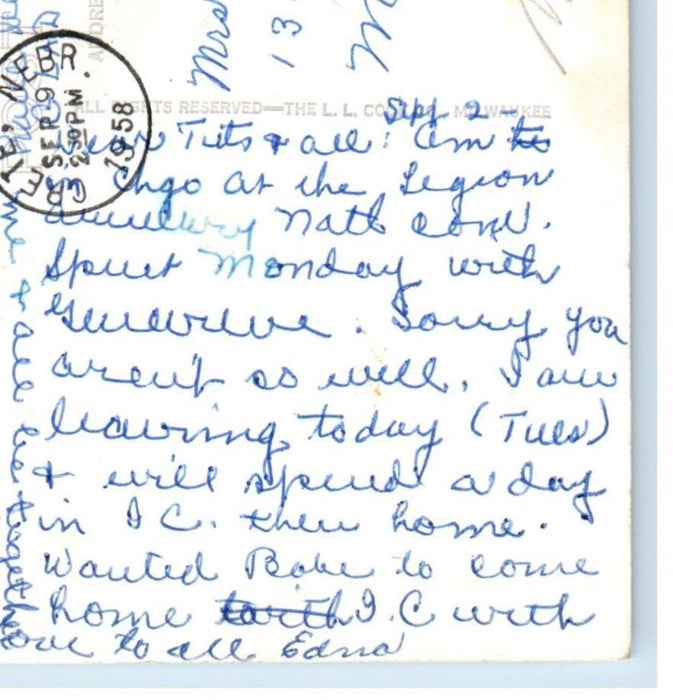 Mrs
13
M
ADDRE
ALL RIGHTS RESERVED—THE L. L. CO MILWAUKEE
CRETE, NEBR.
SEP 9
2 30 PM
1958
Sept 2-
Dear Tuts & all: Am to
Chgo at the Legion
Auxiliary Natl conv.
Spent Monday with
Genevieve. Sorry you
aren't so well. I am
leaving today (Tues)
& will spend a day
in I C. then home.
Wanted Babe to come
home with I.C with
me & all be together
Love to all Edna